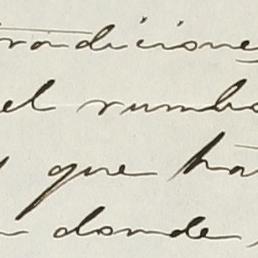 tradiciones
el rumbo
que ha
donde